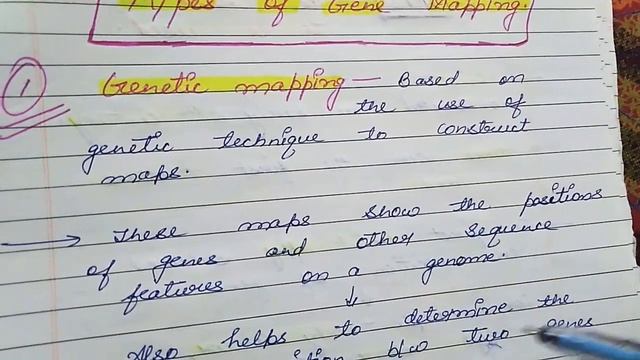 Types of Gene Mapping.
1 Genetic mapping — Based on
the use of
genetic technique to construct
maps.
→ These maps show the positions
of genes and other sequence
features on a genome.
↓
Also helps to determine the
b/w two genes